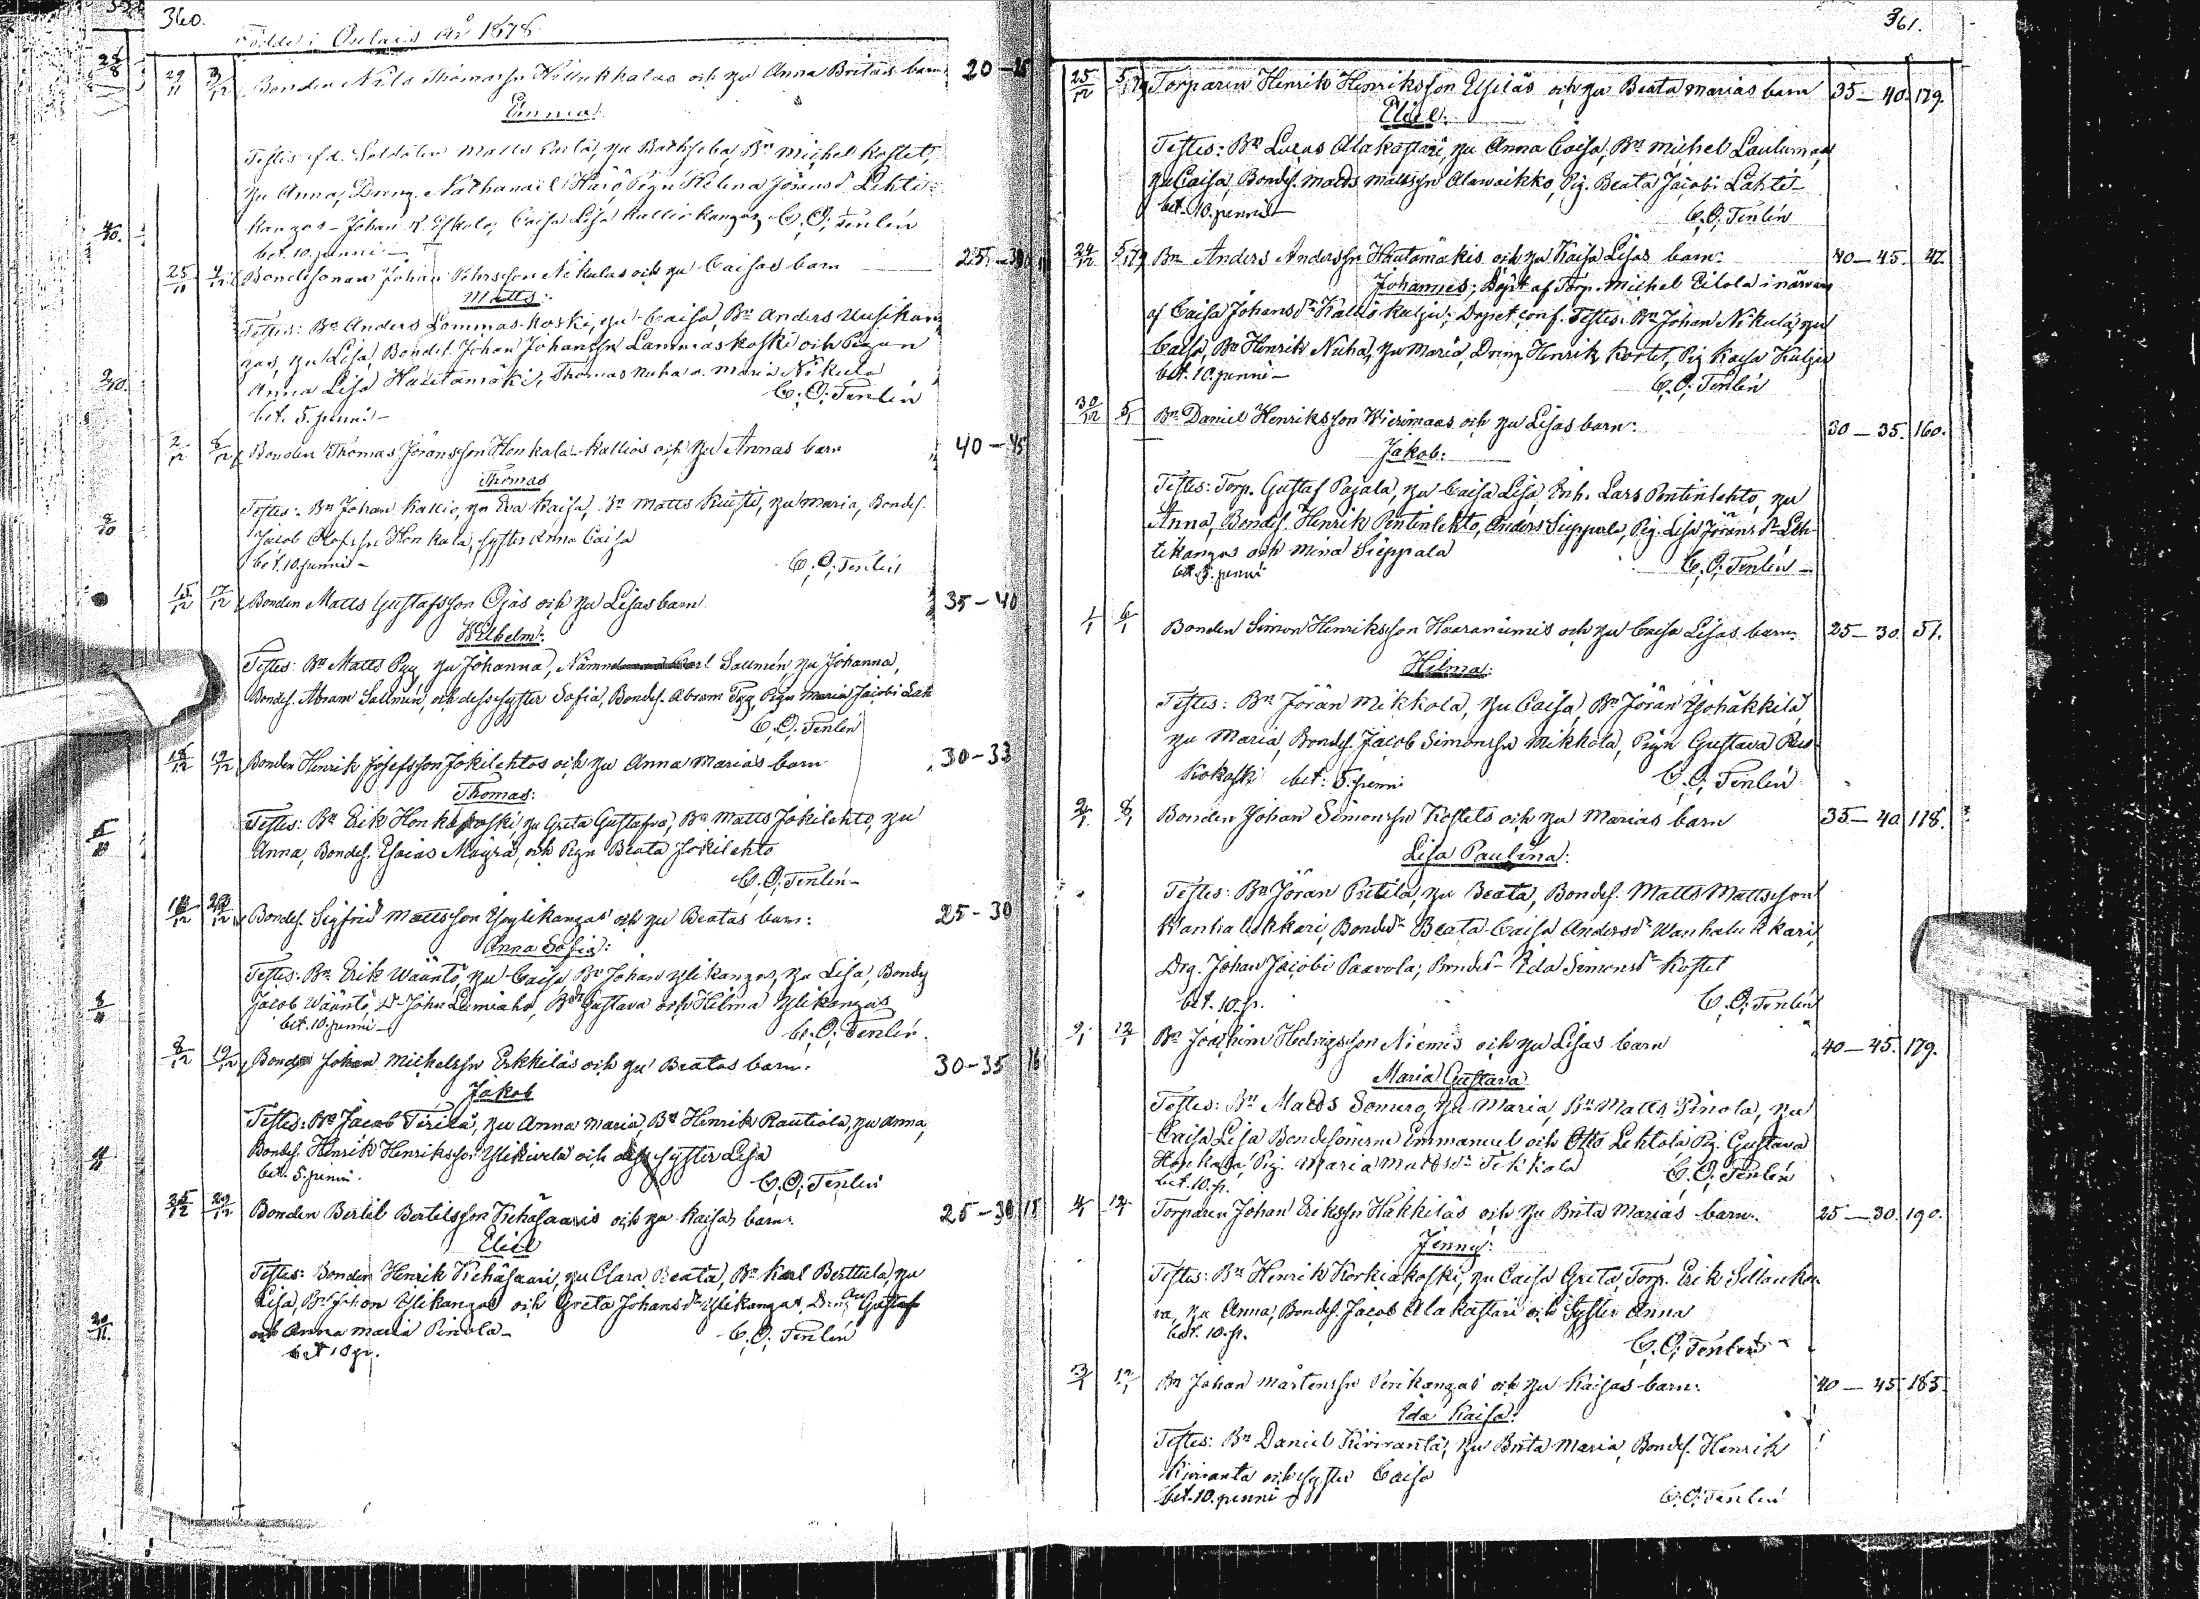 360.
Födde i Oulais år 1878
29/11 3/12 Bonden Nils Thomasson Hillukkalas och hu Anna Britas barn 20 — 25
Emma:
Testes: f.d. Soldaten Matts Perlä, hu Bathseba, Bn Michel Kostet,
hu Anna, Dreng. Nathanael Härö Pigu Helena Jöransdr Lehti-
kangas – Johan Eskola, Caisa Lisa Kalliokangas C. O. Fenlén
bet. 10. penni –
25/11 4/12 Bondesonen Johan Petersson Nikulas och hu Caisas barn 25 — 30
Matts:
Testes: Bn Anders Lammaskoski, hu Caisa, Bn Anders Uusikan-
gas, hu Lisa, Bondes. Johan Johansson Lammaskoski och Pigan
Anna Lisa Hautamäki, Thomas Nuha o. Maria Nikula
C. O. Fenlén
bet. 5. penni –
2/12 8/12 Bonden Thomas Jöransson Honkala-Kallios och hu Annas barn 40 — 45
Thomas
Testes: Bn Johan Kallio, hu Eva Kaisa, Bn Matts Kuisti, hu Maria, Bondes.
Jacob Olofsson Honkala, syster Anna Caisa
bet. 10. penni – C. O. Fenlén
15/12 17/12 Bonden Matts Gustafsson Ojas och hu Lisas barn 35 — 40
Wilhelm:
Testes: Bn Matts Pyy, hu Johanna, Carl Sallmén hu Johanna,
Bondes. Abram Sallmén, och dess syster Sofia, Bondes. Abram Pyy, Pigu Maria Jacobi Lah
C. O. Fenlén
18/12 19/12 Bonden Henrik Josefsson Jokilehtos och hu Anna Marias barn 30 – 33
Thomas:
Testes: Bn Erik Honkakoski hu Greta Gustafva, Bn Matts Jokilehto, hu
Anna, Bondes. Esaias Mäyrä, och Pign Beata Jokilehto
C. O. Fenlén –
Bondes. Sigfrid Mattsson Ylikangas och hu Beatas barn: 25 – 30
Anna Sofia:
Testes: Bn Erik Wääntö, hu Caisa, Bn Johan Ylikangas, hu Lisa, Bondes
Jacob Wääntö, Dr John Lumiaho, Gustava och Hilma Ylikangas
bet. 10. penni – C. O. Fenlén
8/12 19/12 Bonden Johan Michelsson Erkkiläs och hu Beatas barn. 30 – 35
Jakob
Testes: Bn Jacob Terilä, hu Anna Maria, Bn Henrik Rautiola, hu Anna,
Bondes. Henrik Henriksson Ylikivelä och dess syster Lisa
bet. 5. penni. C. O. Fenlén
Bonden Bertil Bertilsson Kehäsaaris och hu Kaisas barn: 25 – 30
Eliel
Testes: Bonden Henrik Kehäsaari, hu Clara Beata, Bn Karl Berttula, hu
Lisa, Bn Johan Ylikangas och Greta Johansdr Ylikangas, Dreng Gustaf
och Anna Maria Pirola – C. O. Fenlén
bet 10 p.
361.
25/12 5/1 79 Torparen Henrik Henriksson Esiläs och hu Beata Marias barn 35 — 40. 179.
Eliel:
Testes: Bn Lucas Alakastari, hu Anna Caisa, Bn Michel Laulumaa
hu Caisa, Bondes. Matts Mattsson Alavaikko, Pig. Beata Jacobi Lahti –
bet. 10. penni – C. O. Fenlén
24/12 5/1 79 Bn Anders Andersson Hautamäkis och hu Kaisa Lisas barn: 40 — 45. 47.
Johannes; Döpt af Torp. Michel Eilola i närvaro
af Caisa Johansdr Kalliokulju; Dopet conf. Testes: Bn Johan Nikula, hu
Caisa, Bn Henrik Nuha, hu Maria, Dreng Henrik Kortet, Pig Kaisa Kulju
bet. 10. penni – C. O. Fenlén
30/12 5/1 Bn Daniel Henriksson Wierimaas och hu Lisas barn: 30 — 35. 160.
Jakob:
Testes: Torp. Gustaf Pajala, hu Caisa Lisa, Inh. Lars Pentinlehto, hu
Anna, Bondes. Henrik Pentinlehto, Anders Sieppala, Pig. Lisa Jöransdr Leh-
tikangas och Mina Sieppala
bet. 5. penni C. O. Fenlén –
1/1 6/1 Bonden Simon Henriksson Haaraniemis och hu Caisa Lisas barn: 25 — 30. 51.
Hilma:
Testes: Bn Jöran Mikkola, hu Caisa, Bn Jöran Ylihäkkilä
hu Maria, Bondes. Jacob Simonsson Mikkola, Pign Gustava Rus-
kokoski bet: 5. penni C. O. Fenlén
2/1 8/1 Bonden Johan Simonsson Kostets och hu Marias barn 35 — 40 118.
Lisa Paulina:
Testes: Bn Jöran Pietilä, hu Beata, Bondes. Matts Mattsson
Wanhalukkari, Bondedr Beata Caisa Andersdr Wanhalukkari,
Drg. Johan Jacobi Paavola; Bondedr Ida Simonsdr Kostet
bet. 10. p. C. O. Fenlén
9/1 12/1 Bn Joachim Hedvigsson Niemis och hu Lisas barn 40 — 45. 179.
Maria Gustava
Testes: Bn Matts Somero, hu Maria, Bn Matts Pirola, hu
Caisa Lisa Bondesönerne Emmanuel och Otto Lehtola Pig. Gustava
Honkala, Pig. Maria Mattsdr Tikkala C. O. Fenlén
bet. 10. p.
4/1 12/1 Torparen Johan Eriksson Häkkiläs och hu Brita Marias barn. 25 — 30. 190.
Jenny:
Testes: Bn Henrik Korkiakoski, hu Caisa Greta, Torp. Erik Sillanka-
va, hu Anna, Bondes. Jacob Alakastari och Syster Anna
bet. 10. p.
C. O. Fenlén –
3/1 12/1 Bn Johan Mårtensson Perikangas och hu Kaisas barn: 40 — 45 185.
Ida Kaisa:
Testes: Bn Daniel Kiviranta, hu Brita Maria, Bondes. Henrik
Kiviranta och syster Caisa
bet. 10. penni C. O. Fenlén